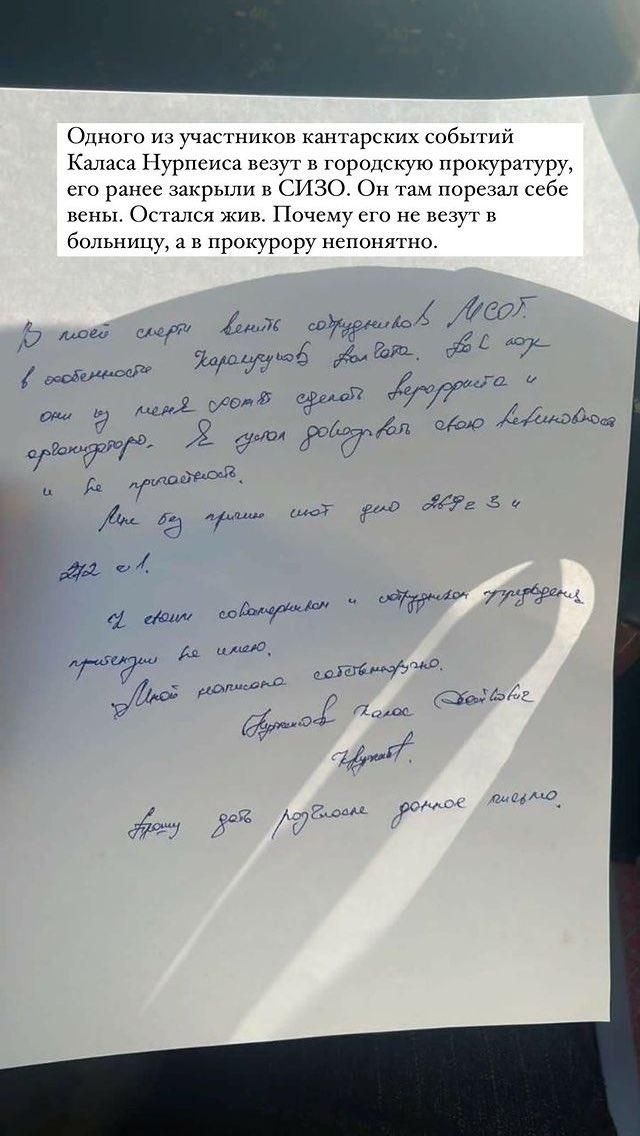 Одного из участников кантарских событий
Каласа Нурпеиса везут в городскую прокуратуру,
его ранее закрыли в СИЗО. Он там порезал себе
вены. Остался жив. Почему его не везут в
больницу, а в прокурору непонятно.
В моей смерти венить сотрудников МСОГ.
в особенности
они из меня хотят сделать и
организатора. Я устал доказывать свою невиновность
и не причастность.
Мне без причин шют дело 269 с 3 и
272 с 1.
К своим сокамерникам и сотрудникам учреждения
притензии не имею.
Мной написано собственоручно.
Нурпеисов Калас
Прошу дать розгласке данное письмо.